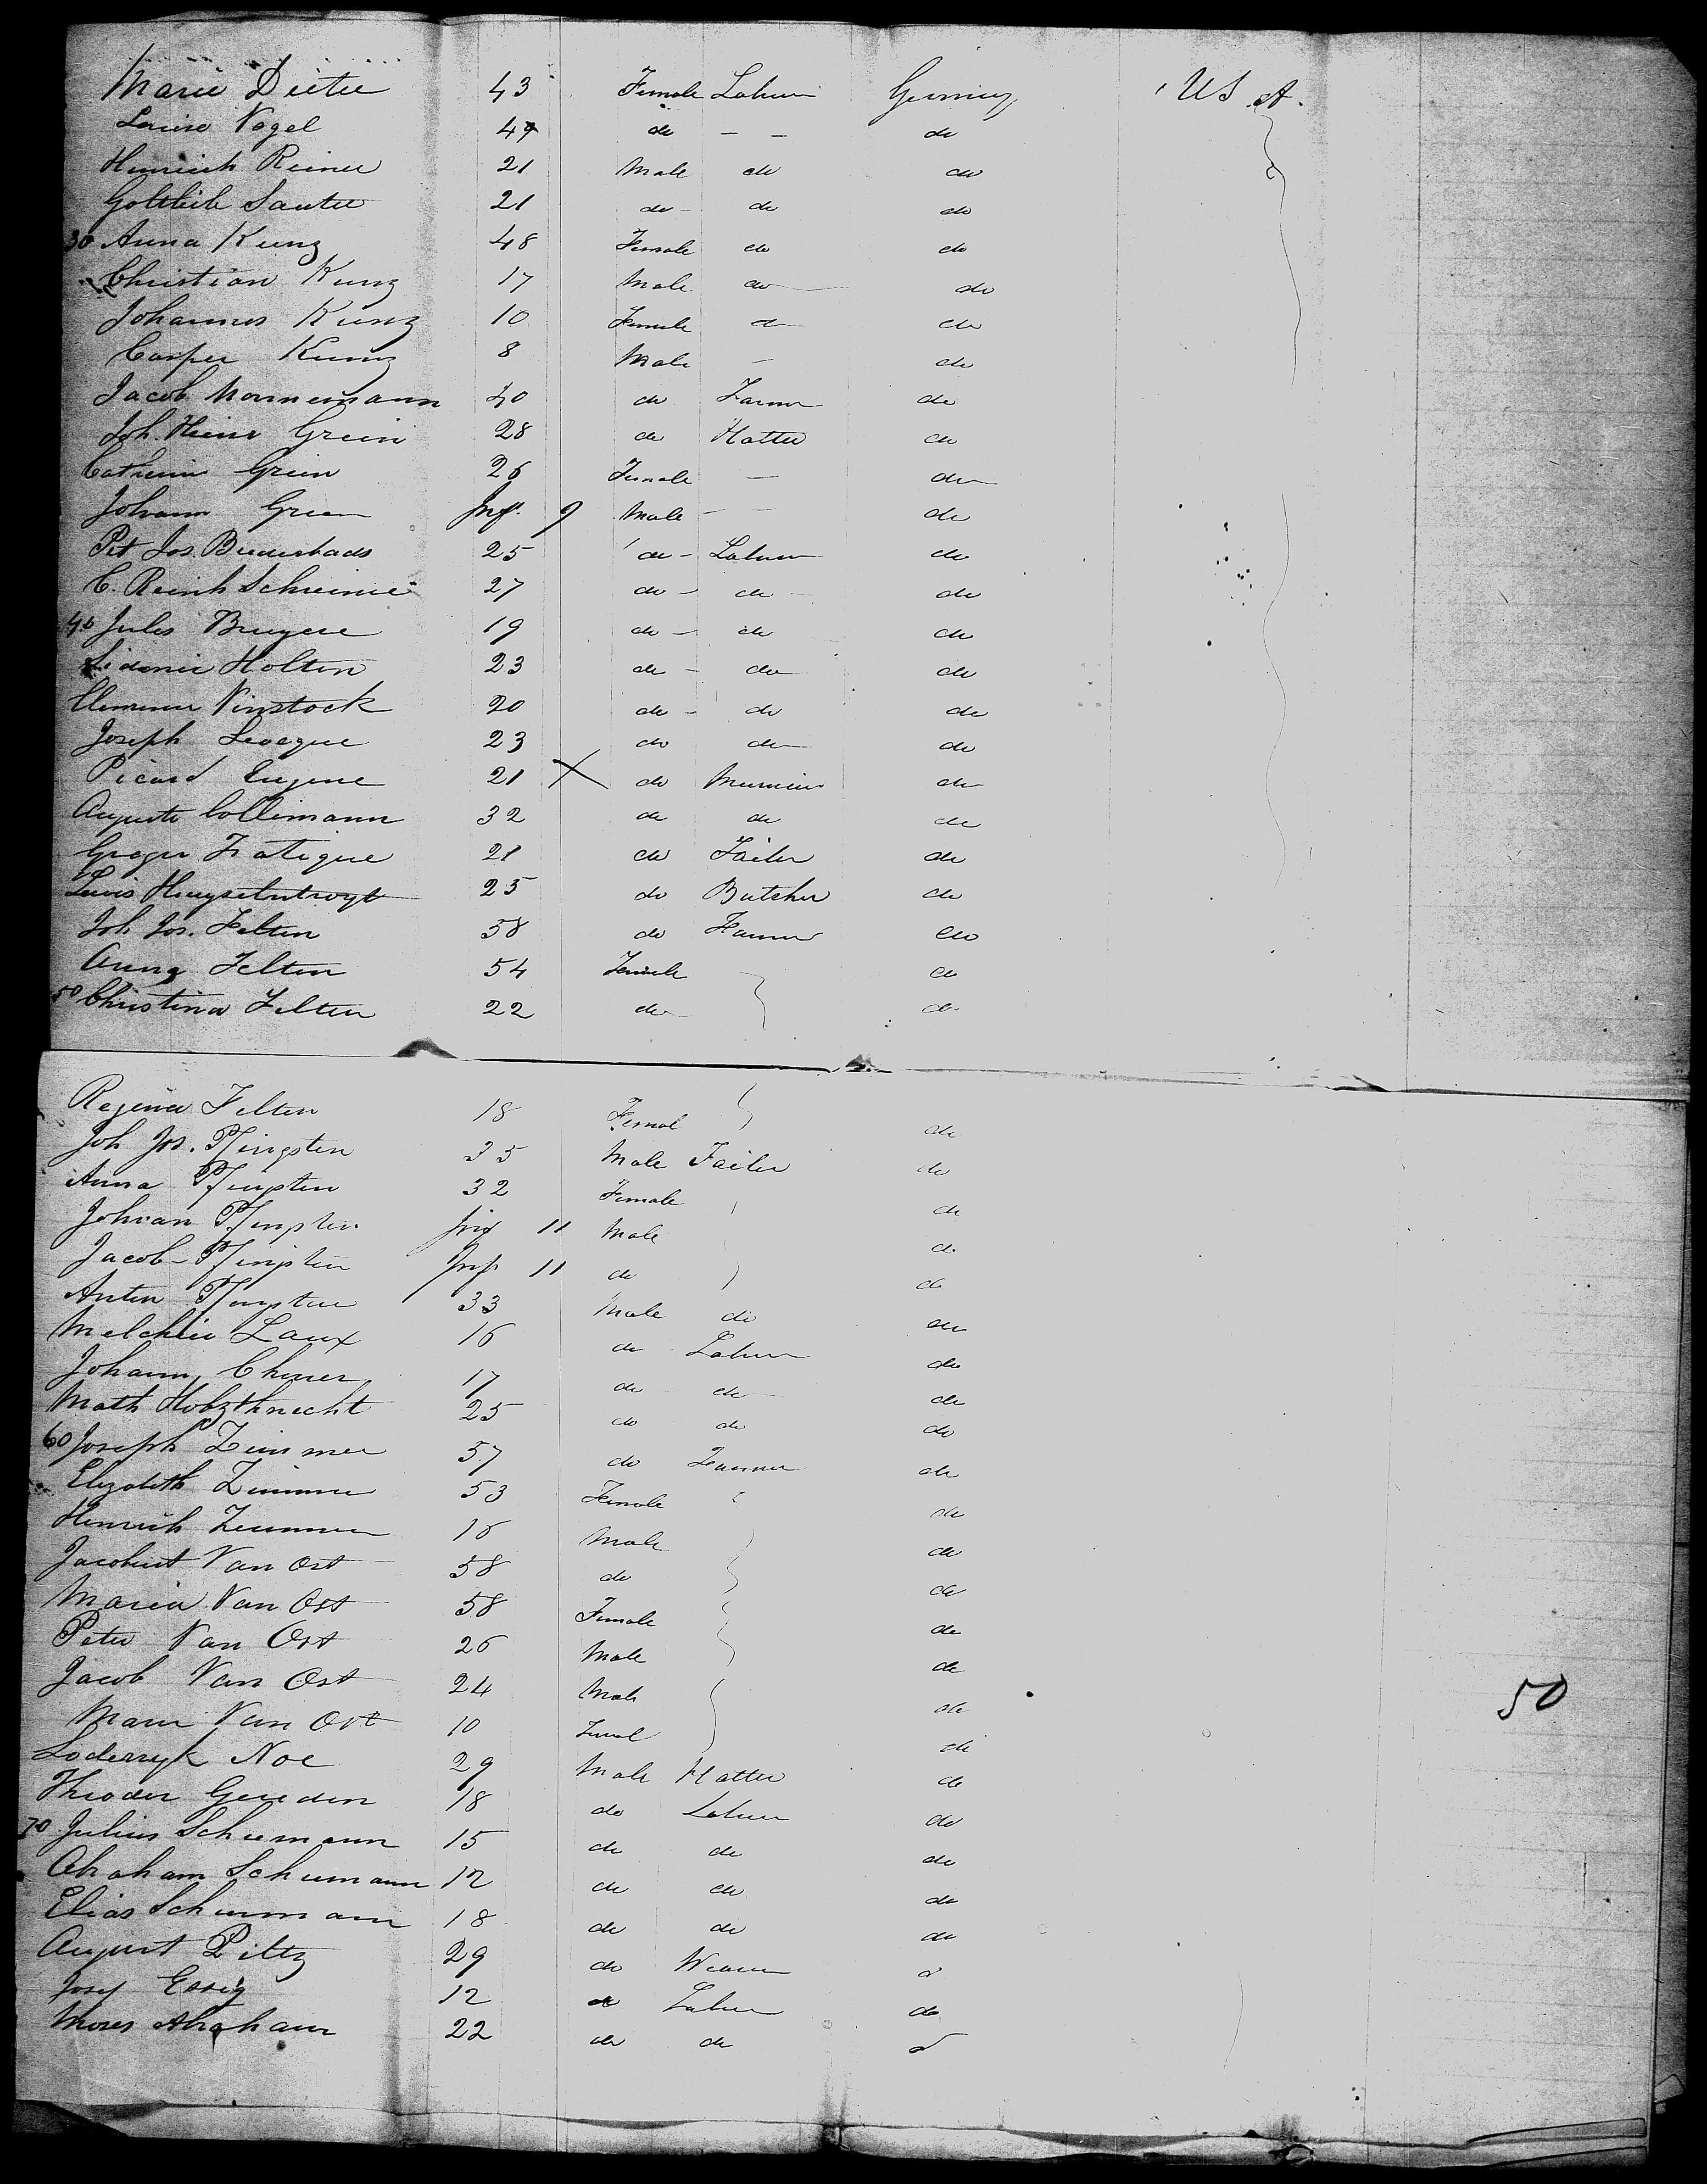 Marie Dieter 43 Female Laburer Germany U S A.
Louise Vogel 47 do — — do
Heinrich Reiner 21 Male do do
Gottlieb Sauter 21 do - do do
30 Anna Kunz 48 Female do do
Christian Kunz 17 Male do do
Johannes Kunz 10 Female do do
Casper Kunz 8 Male — do
Jacob Mornemann 40 do Farmer do
Joh. Heinr Grein 28 do Hatter do
Catharin Grein 26 Female — do
Johann Grein Inf. 9 Male — — do
Pet Jos. 25 do - Laburer do
C. Reinh Schreiner 27 do - do do
40 Jules Bruyere 19 do - do do
Sidonie Holten 23 do - do do
Vinstock 20 do - do do
Joseph Leveque 23 do do do
Picard Eugene 21 X do do
Auguste Collimann 32 do do do
Fatique 21 do Tailer do
Louis 25 do Butcher do
Joh Jos. Felten 58 do Farmer do
Anna Felten 54 Female do
50 Christina Felten 22 do do
Regina Felten 18 Femal do
Joh Jos. Pfingsten 35 Male Tailer do
Anna Pfingsten 32 Female do
Johoan Pfingsten Inf 11 Male do
Jacob Pfingsten Inf 11 do do
Anton Pfingsten 33 Male do do
Melchior Laux 16 do Laburer do
Johann 17 do do do
Math Holzthnecht 25 do do do
60 Joseph Zimmer 57 do Farmer do
Elizabeth Zimmer 53 Female do
Heinrich Zimmer 16 Male do
Van Ost 58 do do
Maria Van Ost 58 Female do
Peter Van Ost 26 Male do
Jacob Van Ost 24 Male do 50
Marie Van Ost 10 Femal do
Loderryk Noe 29 Male Hatter do
Theodor 18 do Laburer do
70 Julius Schumann 15 do do do
Abraham Schumann 12 do do do
Elias Schumann 18 do do do
August Piltz 29 do Weaver do
Josef Essig 12 do Laburer do
Moses Abraham 22 do do do